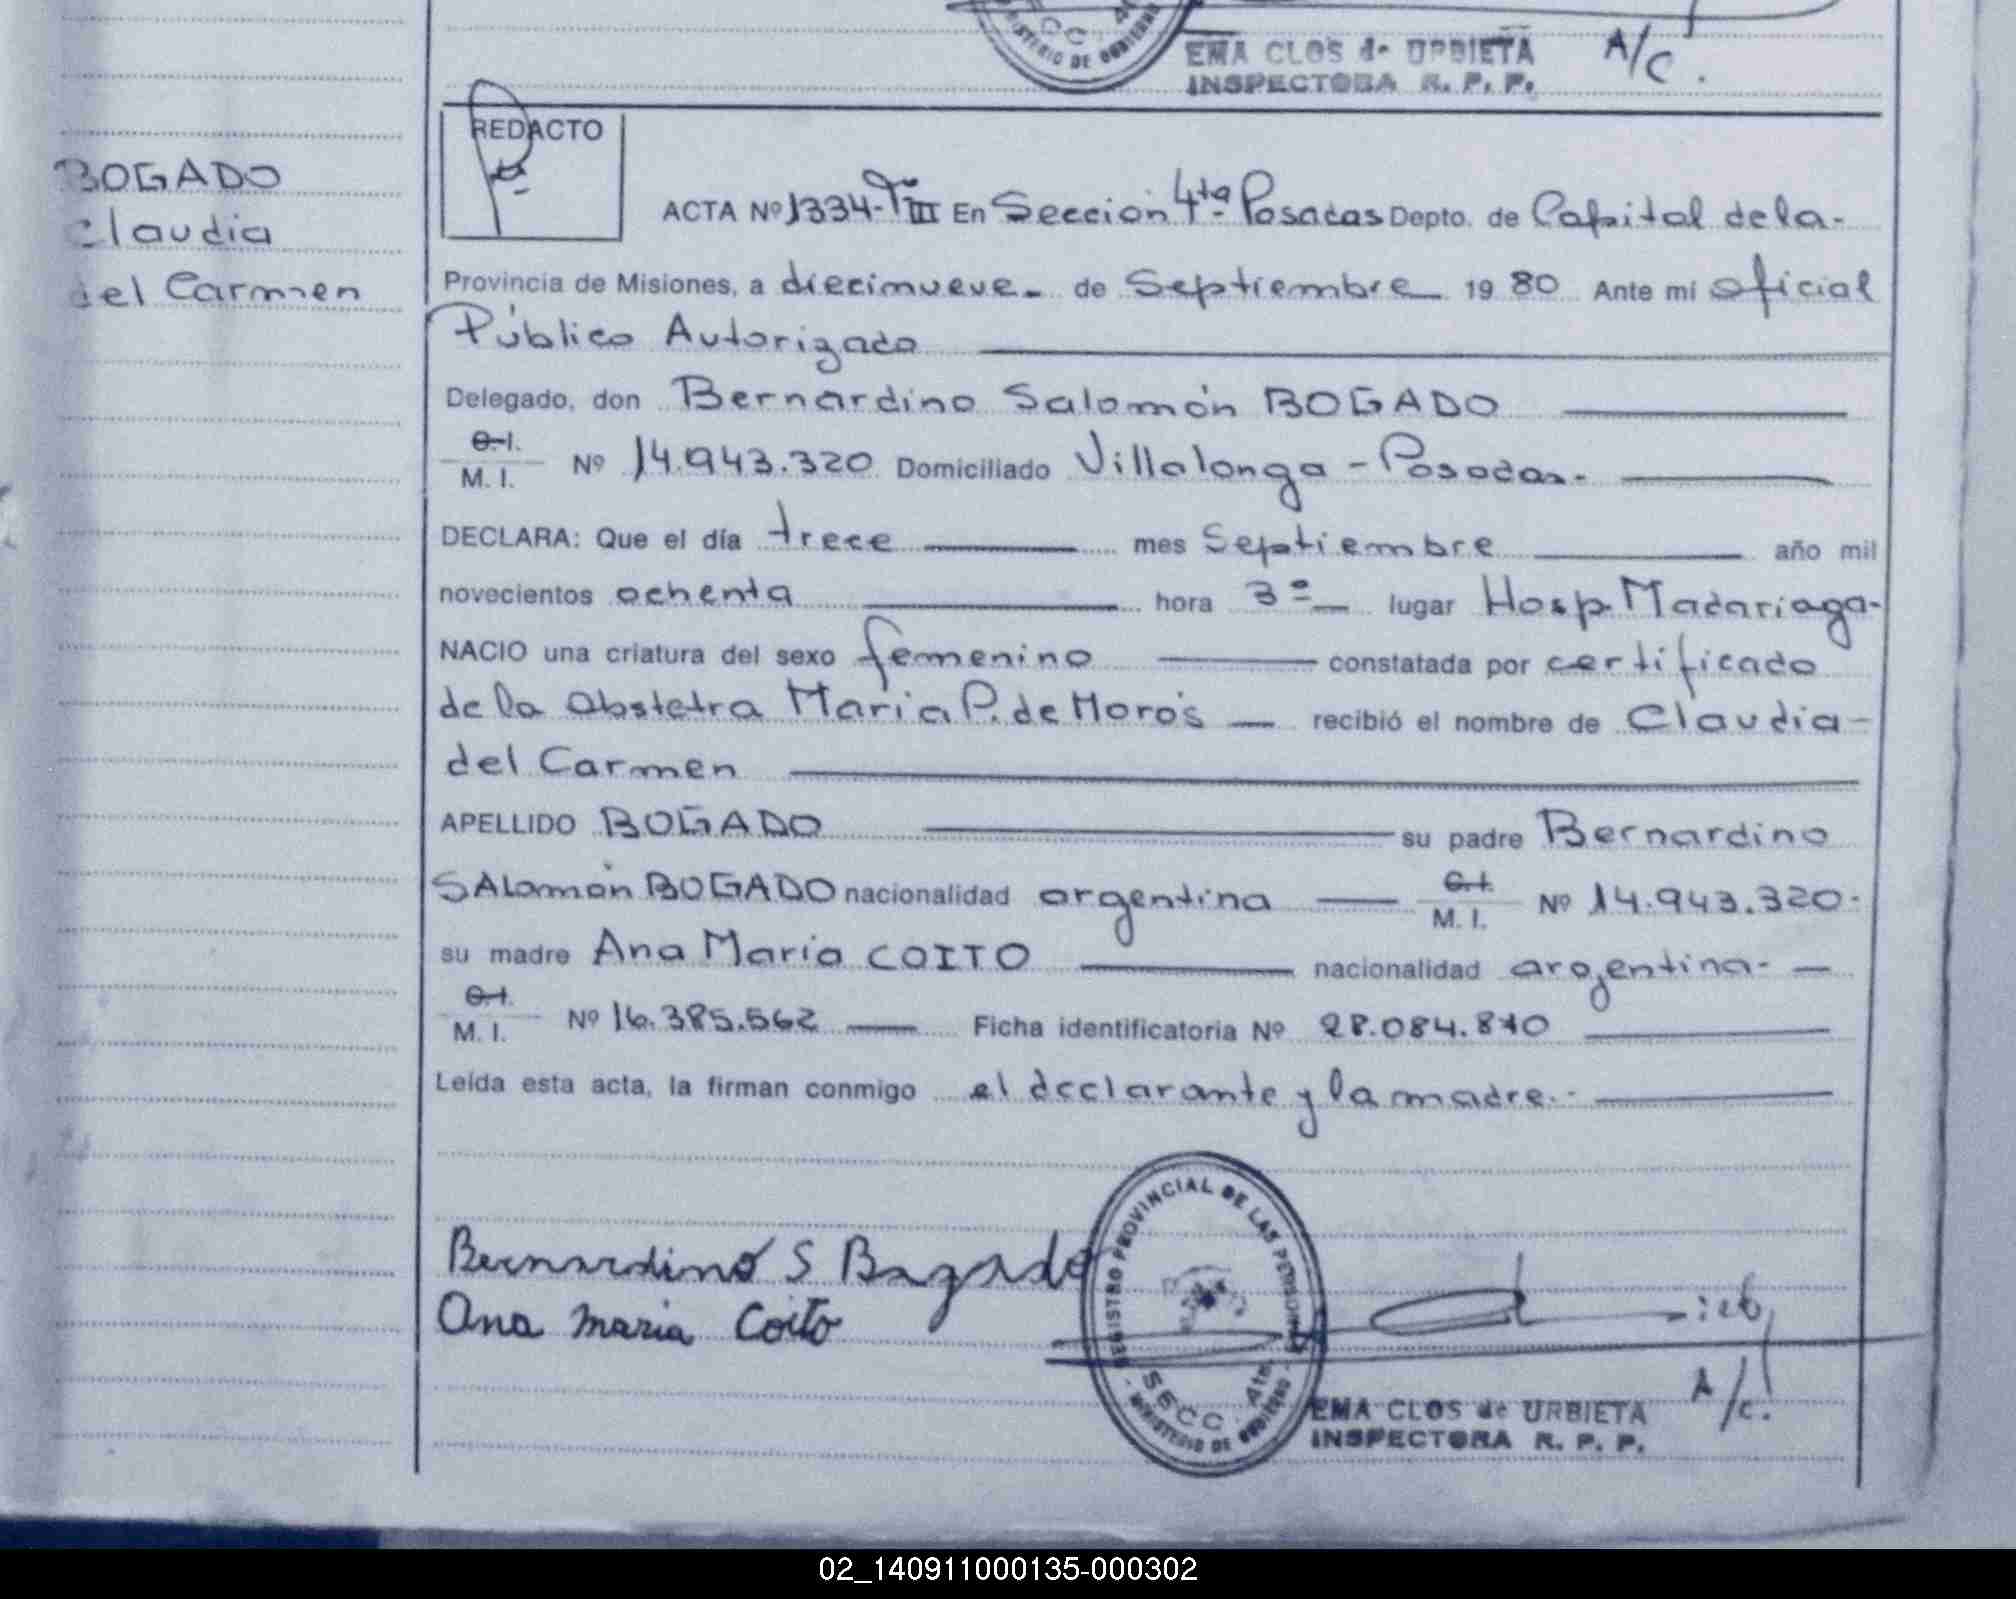 EMA CLOS de URBIETA A/C.
INSPECTORA R. P. P.
BOGADO
Claudia
del Carmen
REDACTO
ACTA Nº 1334-Tº III En Sección 4ta Posadas Depto. de Capital de la-
Provincia de Misiones, a diecinueve- de Septiembre 1980 Ante mi oficial
Público Autorizado
Delegado, don Bernardino Salomón BOGADO
C.I.
M. I. Nº 14.943.320 Domiciliado Villalonga - Posadas.-
DECLARA: Que el día trece mes Septiembre año mil
novecientos ochenta hora 3ª lugar Hosp. Madariaga-
NACIO una criatura del sexo femenino constatada por certificado
de la Obstetra María P. de Moros recibió el nombre de Claudia-
del Carmen
APELLIDO BOGADO su padre Bernardino
SAlomón BOGADO nacionalidad argentina C.I.
M. I. Nº 14.943.320-
su madre Ana María COITO nacionalidad argentina-
C.I.
M. I. Nº 16.385.562 Ficha identificatoria Nº 28.084.810
Leída esta acta, la firman conmigo el declarante y la madre.-
Bernardino S Bogado
Ana maria Coito
REGISTRO PROVINCIAL DE LAS PERSONAS
SECC. 4ta
MINISTERIO DE GOBIERNO
A/c.
EMA CLOS de URBIETA
INSPECTORA R. P. P.
02_140911000135-000302